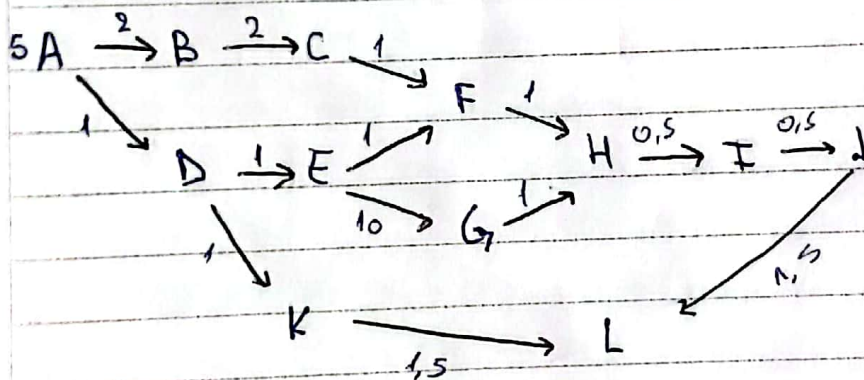 5 A 2 B 2 C 1
F 1
1
D 1 E 1
H 0,5 I 0,5 J
10 G 1
1
K 1,5 L